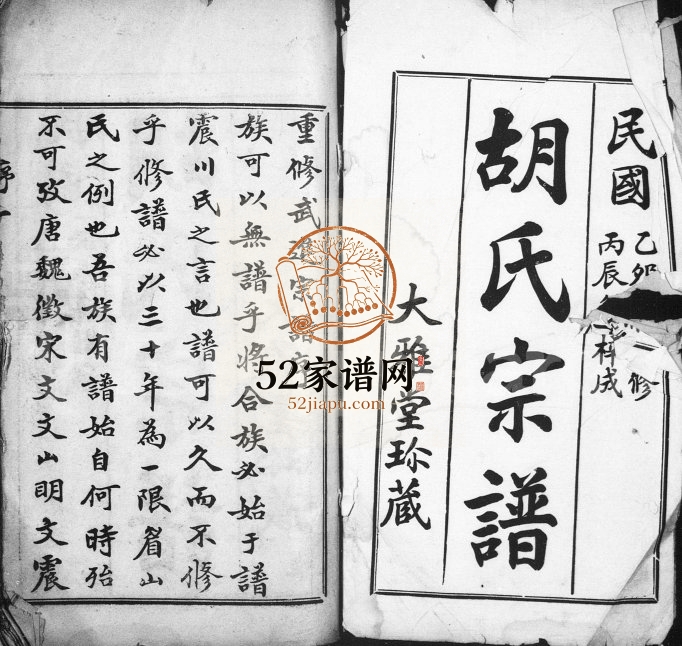 民國
乙卯 修
丙辰 梓成
胡氏宗譜
大雅堂珍藏
重修武 宗譜
族可以無譜乎將合族必始于譜
震川氏之言也譜可以久而不修
乎修譜必以三十年為一限眉山
氏之例也吾族有譜始自何時殆
不可攷唐魏徵宋文文山明文震
序
52家谱网
52jiapu.com